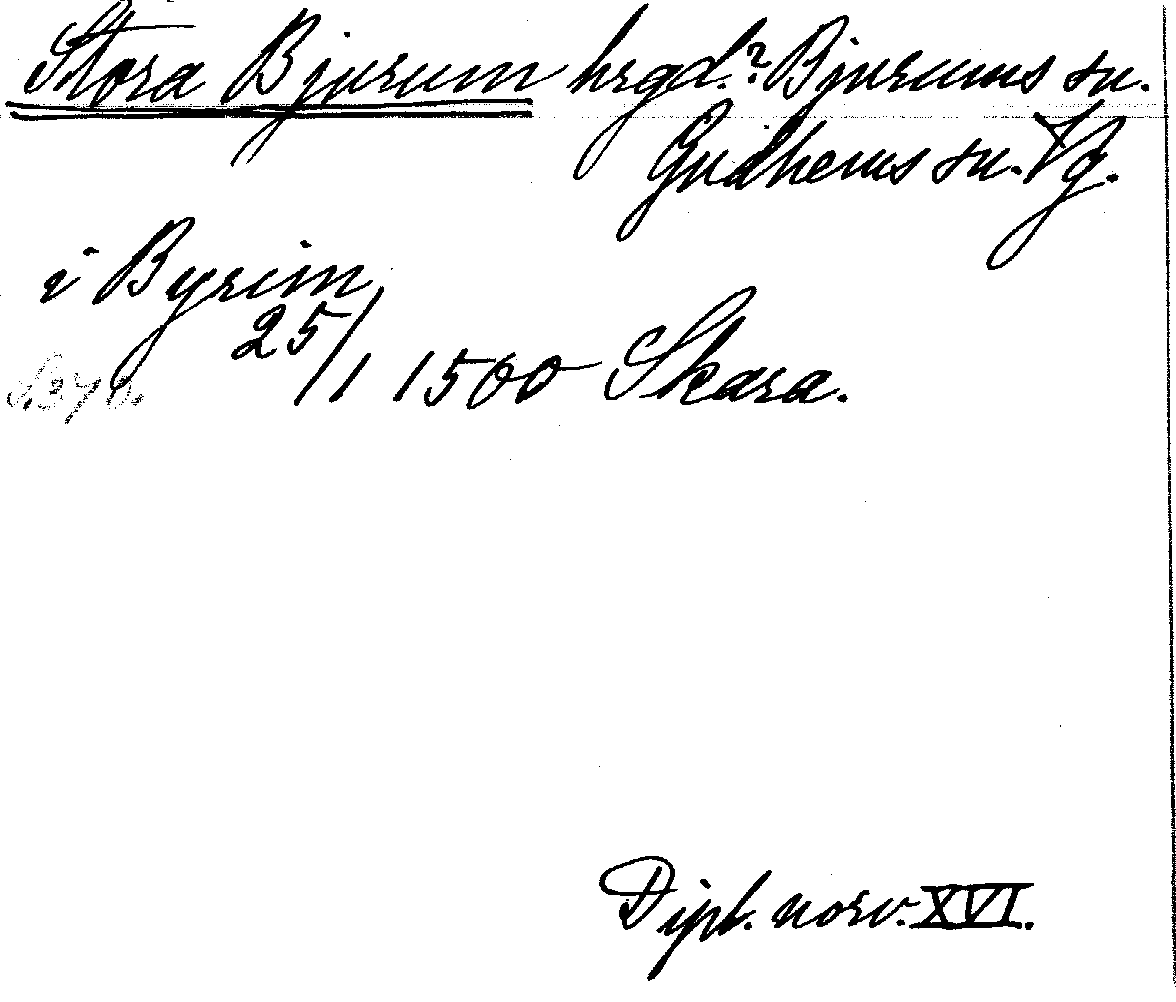 Stora Bjurum hrgd.? Bjurums sn.
Gudhems sn. Vg.
i Byrim
25/1 1500 Skara.
S. 370.
Dipl. norv. XVI.